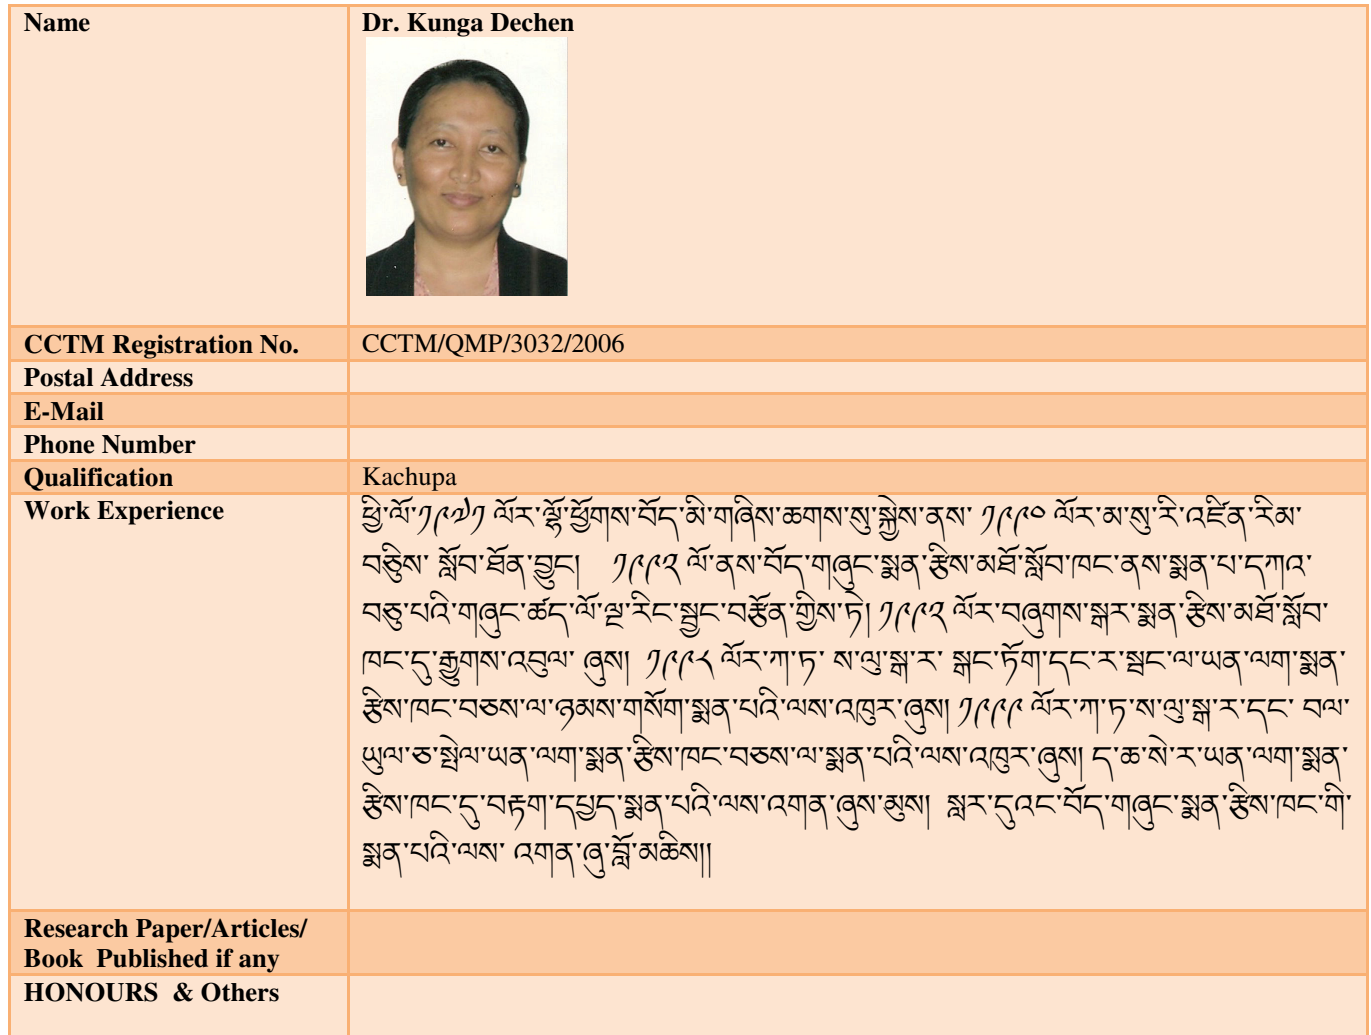 Name
Dr. Kunga Dechen
CCTM Registration No.
CCTM/QMP/3032/2006
Postal Address
E-Mail
Phone Number
Qualification
Kachupa
Work Experience
ཕྱི་ལོ་༡༩༧༡ ལོར་ལྷོ་ཕྱོགས་བོད་མི་གཞིས་ཆགས་སུ་སྐྱེས་ནས་ ༡༩༩༠ ལོར་མ་སུ་རི་འཛིན་རིམ་
བཅིུས་ སློབ་ཐོན་བྱུང། ༡༩༩༢ ལོ་ནས་བོད་གཞུང་སྨན་རྩིས་མཐོ་སློབ་ཁང་ནས་སྨན་པ་དཀའ་
བཅུ་པའི་གཞུང་ཚད་ལོ་ལྔ་རིང་སྦྱང་བརྩོན་གྱིས་ཏེ། ༡༩༩༢ ལོར་བཞུགས་སྒར་སྨན་རྩིས་མཐོ་སློབ་
ཁང་དུ་རྒྱུགས་འབུལ་ ཞུས། ༡༩༩༨ ལོར་ཀ་ཏ་ ས་ལུ་སྒ་ར་ སྒང་ཏོག་དང་ར་སྦང་ལ་ཡན་ལག་སྨན་
རྩིས་ཁང་བཅས་ལ་ཉམས་གསོག་སྨན་པའི་ལས་འཁུར་ཞུས། ༡༩༩༩ ལོར་ཀ་ཏ་ས་ལུ་སྒ་ར་དང་ བལ་
ཡུལ་ཅ་སྤེལ་ཡན་ལག་སྨན་རྩིས་ཁང་བཅས་ལ་སྨན་པའི་ལས་འཁུར་ཞུས། ད་ཆ་སེ་ར་ཡན་ལག་སྨན་
རྩིས་ཁང་དུ་བརྟག་དཔྱད་སྨན་པའི་ལས་འགན་ཞུས་མུས། སླར་དུའང་བོད་གཞུང་སྨན་རྩིས་ཁང་གི་
སྨན་པའི་ལས་ འགན་ཞུ་བློ་མཆིས།།
Research Paper/Articles/
Book Published if any
HONOURS & Others